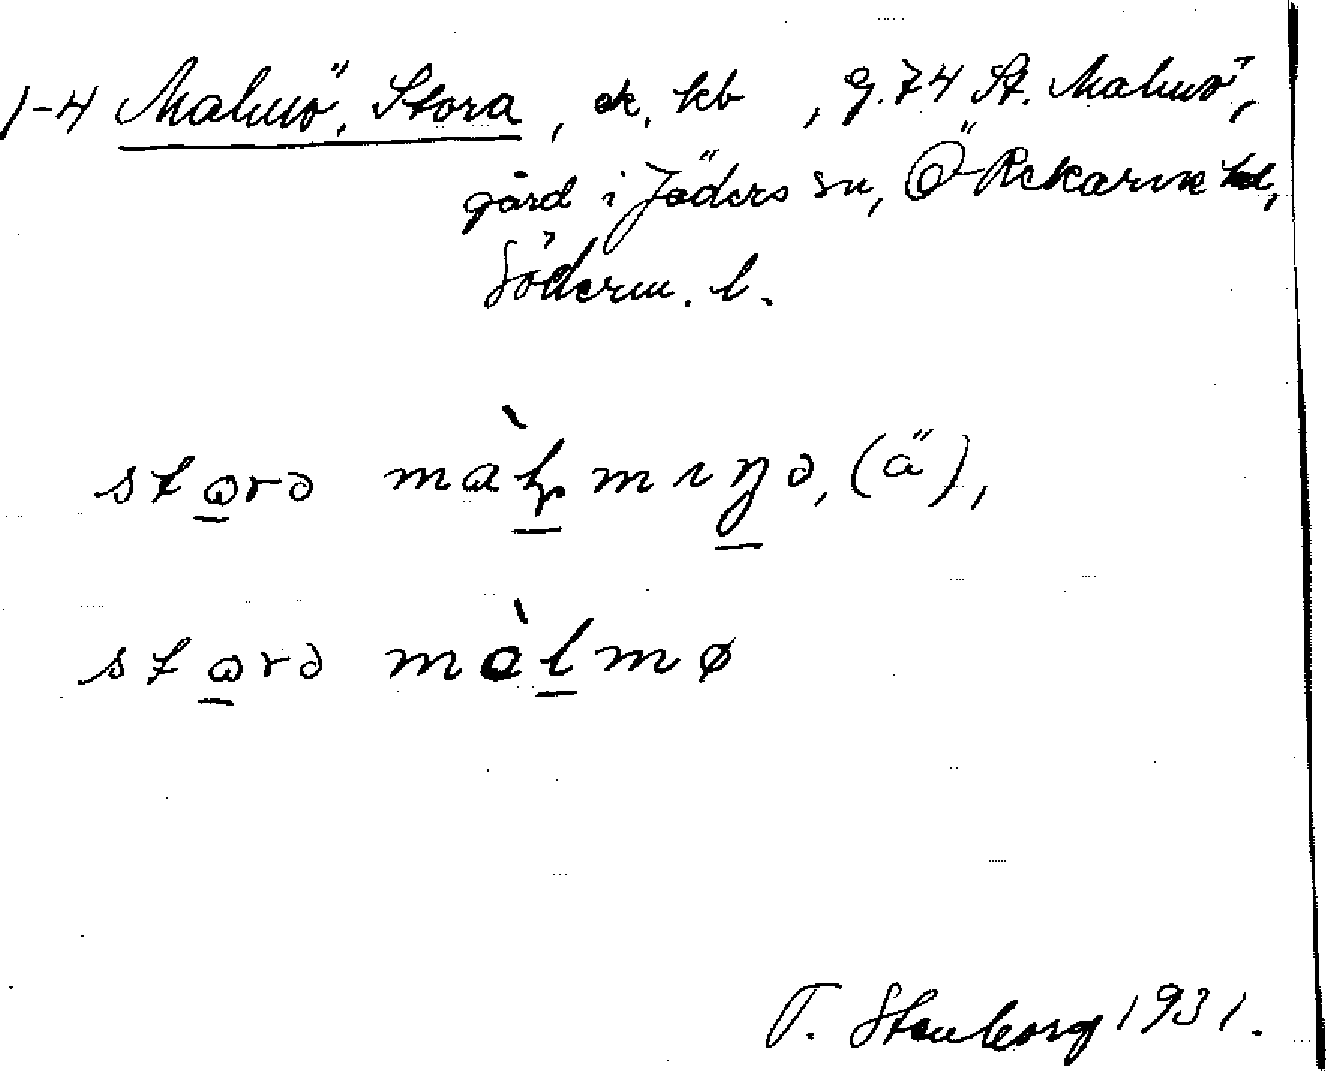 1-4 Malmö, Stora, ek. kb, g. 74 St. Malmö,
gård i Jäders sn, Ö Rekarne hd,
Söderm. l.
stɷrə màⱡmıŋə, (ä),
stɷrə màlmø
T. Stenborg 1931.